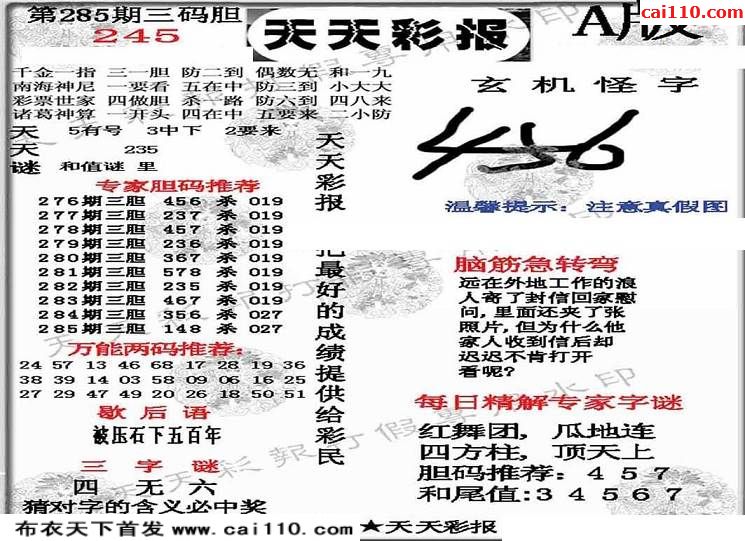 第285期三码胆
245
天天彩报
A版
cai110.com
千金一指 三一胆 防二到 偶数无 和一九
南海神尼 一要看 五在中 防三到 小大大
彩票世家 四做胆 杀一路 防六到 四八来
诸葛神算 一开头 四在中 五要来 二小防
天 5有号 3中下 2要来
天 235
谜 和值谜 里
专家胆码推荐
276期三胆 456 杀 019
277期三胆 237 杀 019
278期三胆 457 杀 019
279期三胆 236 杀 019
280期三胆 367 杀 019
281期三胆 578 杀 019
282期三胆 235 杀 019
283期三胆 467 杀 019
284期三胆 356 杀 027
285期三胆 148 杀 027
万能两码推荐：
24 57 13 46 68 17 28 19 36
38 39 14 03 58 09 06 16 25
27 29 47 49 20 26 18 50 51
歇后语
被压石下五百年
三字谜
四 无 六
猜对字的含义必中奖
天天彩报
把最好的成绩提供给彩民
玄机怪字
456
温馨提示：注意真假图
脑筋急转弯
远在外地工作的浪
人寄了封信回家慰
问，里面还夹了张
照片，但为什么他
家人收到信后却
迟迟不肯打开
看呢？
每日精解专家字谜
红舞团，瓜地连
四方柱，顶天上
胆码推荐：457
和尾值:34567
布衣天下首发 www.cai110.com ★天天彩报